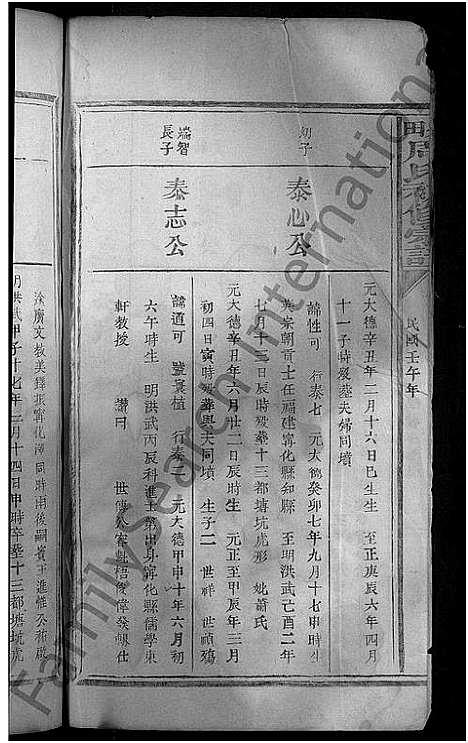 民國壬午年
元大德辛丑年二月十六日巳生生 至正庚辰六年四月
十一子時歿葬夫婦同墳
幼子
泰心公
諱性可 行泰七 元大德癸卯七年九月十七申時生
英宗朝貢士任福建寧化縣知縣 至明洪武己酉二年
七月十三日辰時歿葬十三都塘坑虎形 妣蕭氏
元大德辛丑年六月廿二日辰時生 元正至甲辰年三月
初四日寅時歿葬與夫同墳 生子二 世祥 世禎殤
端智
長子
泰志公
諱道可 號裏植 行泰二 元大德甲申十年六月初
六午時生 明洪武丙辰科進士第出身寧化縣儒學東
軒教授 讚曰 世傳公審魁梧俊偉發軔仕
途廣文教美鐸振寧化澤同時雨後嗣賓王進惟公葬啟
明洪武甲子十七年二月十四日申時卒葬十三都塘坑虎
FamilySearch International